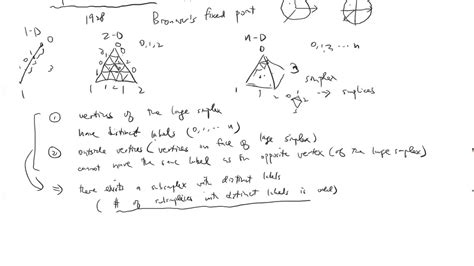 1928 Brouwer's fixed point
1-D 2-D 0,1,2 n-D 0,1,2, ... n
simplex
→ simplices
① vertices of the large simplex
have distinct labels (0,1,... n)
② outside vertices (vertices on face of large simplex)
cannot have the same label as the opposite vertex (of the large simplex)
⇒ there exists a subsimplex with distinct labels
( # of subsimplices with distinct labels is odd)